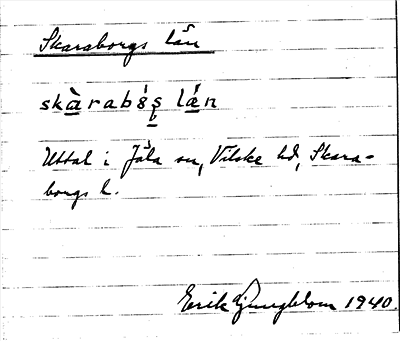 Skaraborgs län
skàrabós̨ lę́n
Uttal i Jäla sn, Vilske hd, Skara-
borgs l.
Erik Ljungblom 1940.